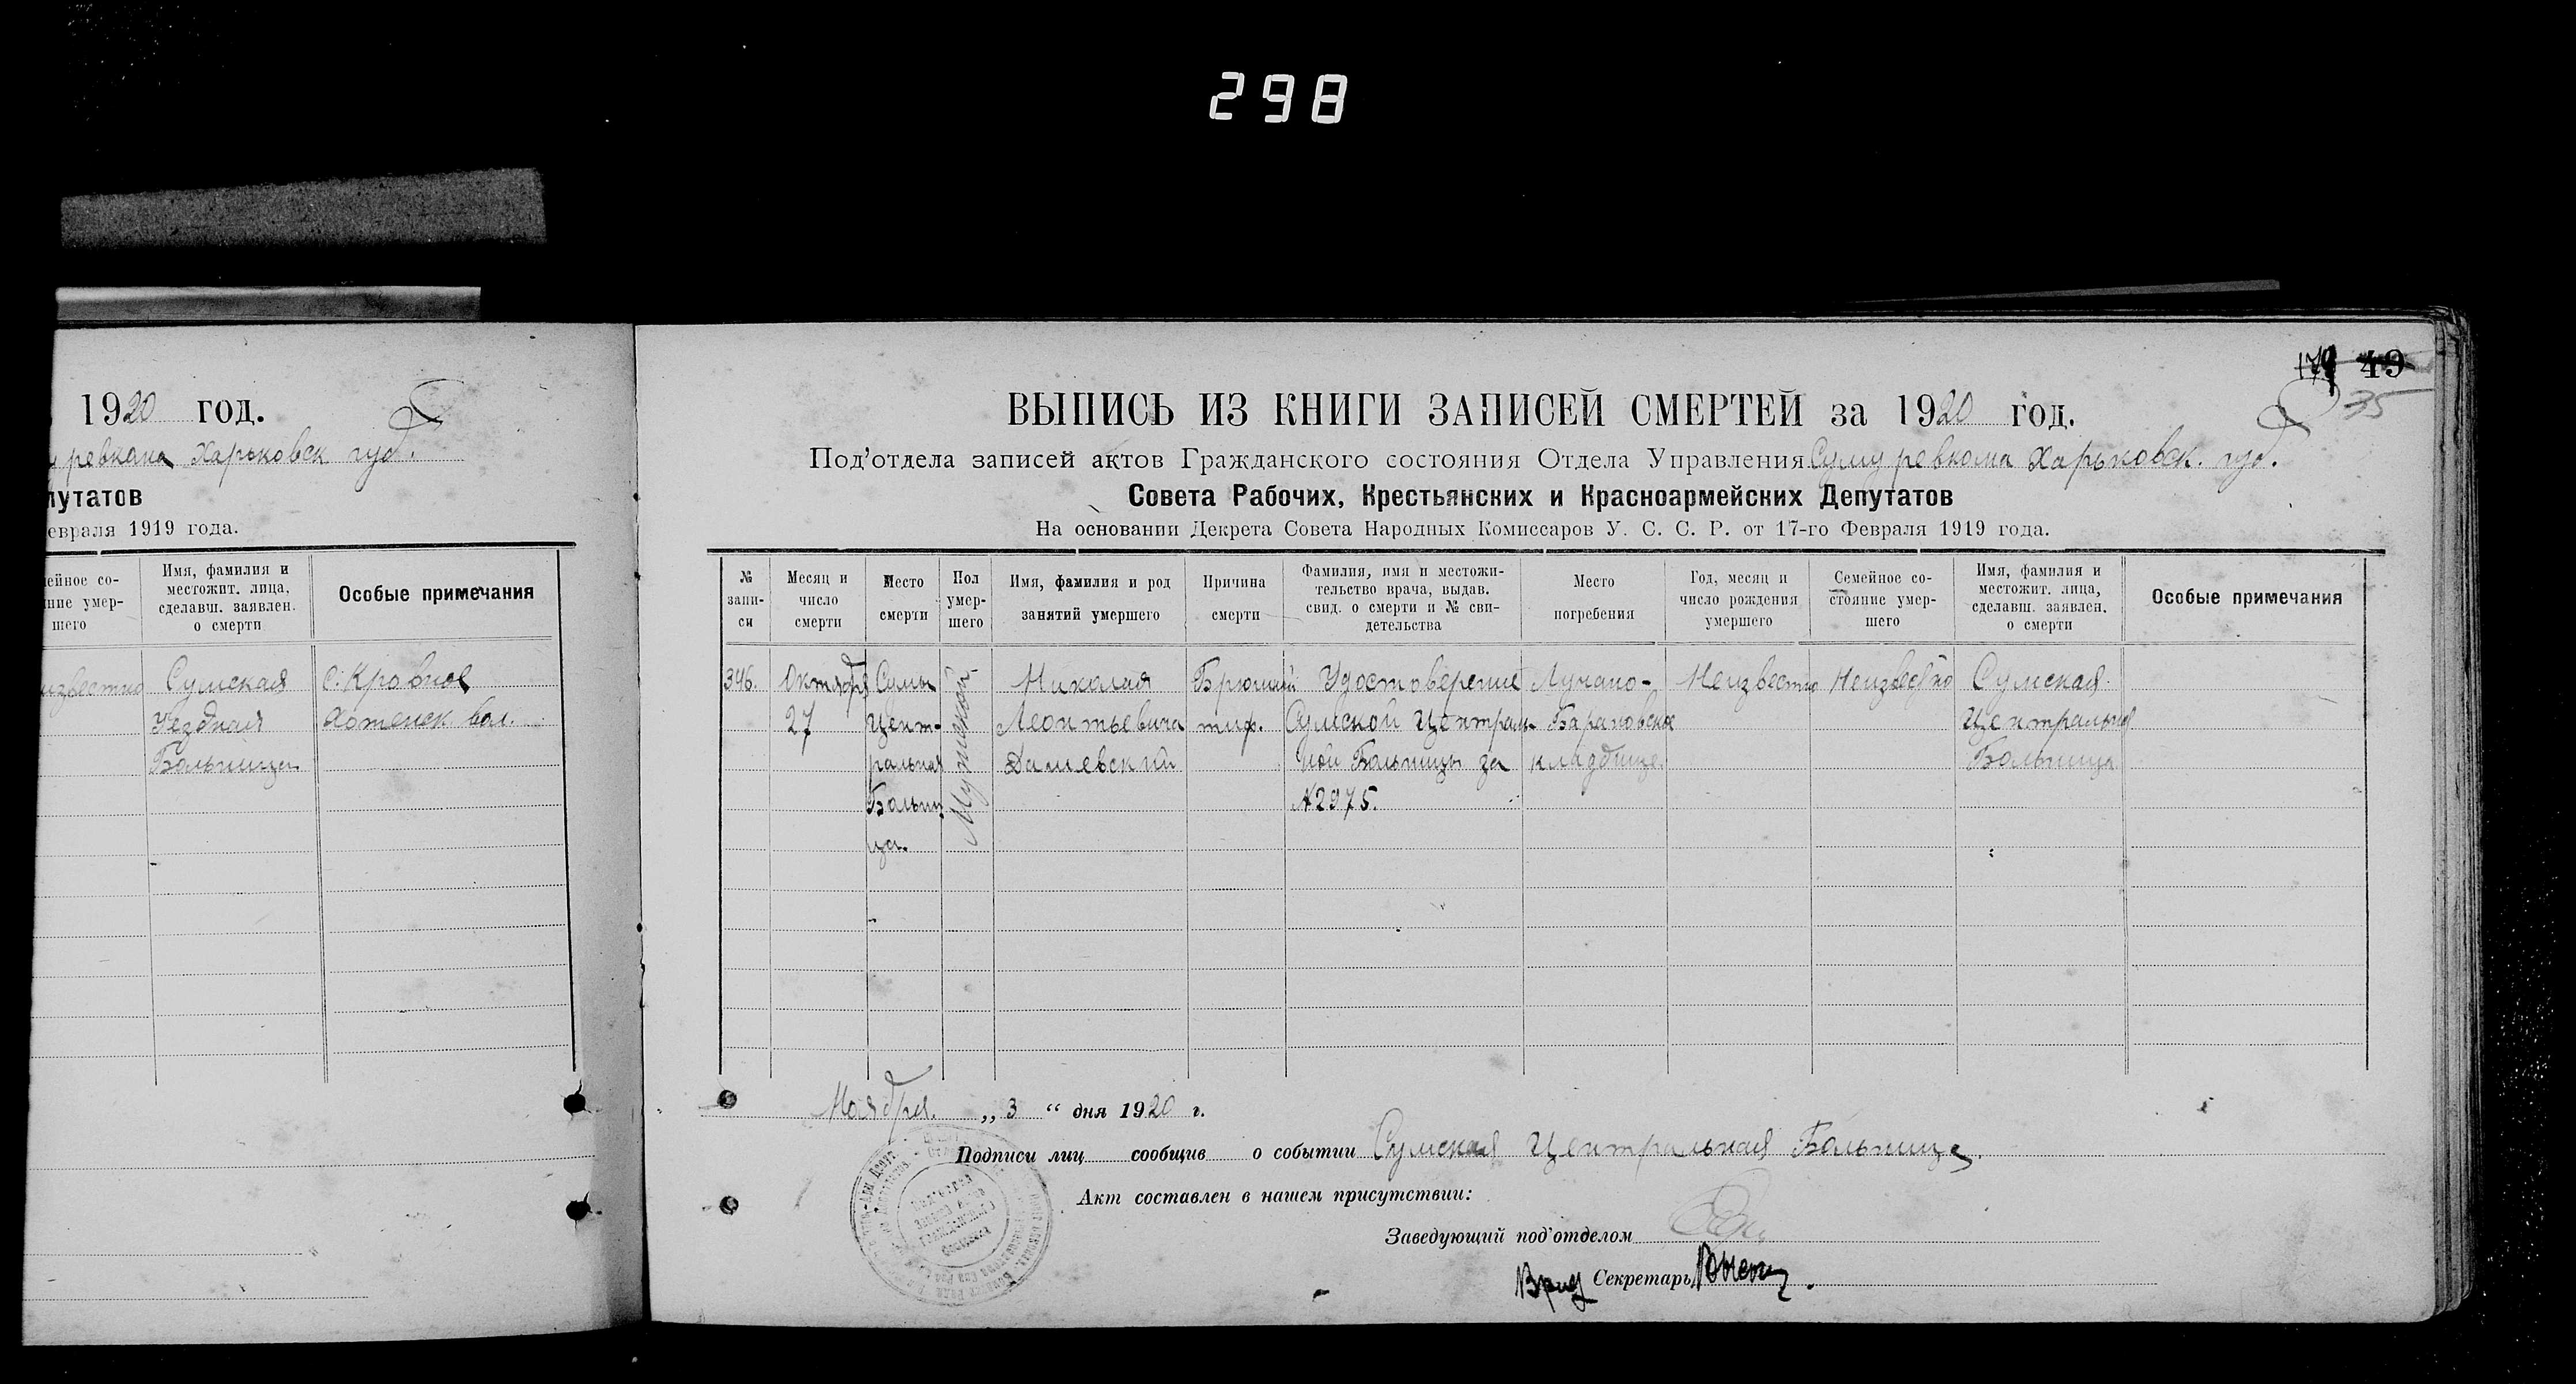 298
1920 год.
ревкома Харьковск губ.
путатов
евраля 1919 года.
ейное со-
ние умер-
шего
Имя, фамилия и
местожит. лица,
сделавш. заявлен.
о смерти
Особые примечания
известно
Сумская
Уездная
Больница
С. Кровное
Хотенск вол.
49
35
ВЫПИСЬ ИЗ КНИГИ ЗАПИСЕЙ СМЕРТЕЙ за 1920 год.
Под'отдела записей актов Гражданского состояния Отдела Управления Суму ревкома Харьковск. губ.
Совета Рабочих, Крестьянских и Красноармейских Депутатов
На основании Декрета Совета Народных Комиссаров У. С. С. Р. от 17-го Февраля 1919 года.
№
запи-
си
Месяц и
число
смерти
Место
смерти
Пол
умер-
шего
Имя, фамилия и род
занятий умершего
Причина
смерти
Фамилия, имя и местожи-
тельство врача, выдав.
свид. о смерти и № сви-
детельства
Место
погребения
Год, месяц и
число рождения
умершего
Семейное со-
стояние умер-
шего
Имя, фамилия и
местожит. лица,
сделавш. заявлен.
о смерти
Особые примечания
346.
Октября
27
Сумы
Цент-
ральная
Больни
ца.
Мужской
Николая
Леонтьевича
Дашевский
Брюшной
тиф.
Удостоверение
Сумской Централь-
ной Больницы за
№2975.
Лучано-
Барановское
кладбище.
Неизвестно
Неизвестно
Сумская
Центральная
Больница
Ноября. „3“ дня 1920 г.
Подписи лиц сообщив о событии Сумская Центральная Больница.
Акт составлен в нашем присутствии:
Заведующий под'отделом
Врид Секретарь